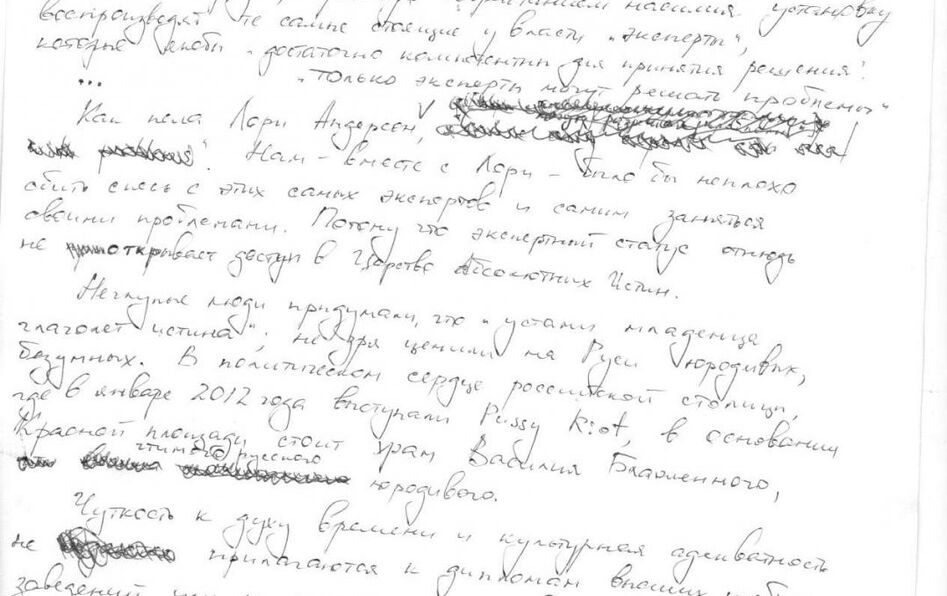 насилия установку
воспроизводят те самые стоящие у власти „эксперты",
которые якобы „достаточно компетентны для принятия решения".
...
„только эксперты могут решать проблемы"
Как пела Лори Андерсон, V
". Нам – вместе с Лори – было бы неплохо
сбить спесь с этих самых экспертов и самим заняться
своими проблемами. Потому что экспертный статус отнюдь
не открывает доступ в Царство Абсолютных Истин.
Неглупые люди придумали, что „устами младенца
глаголет истина", не зря ценили на Руси юродивых,
безумных. В политическом сердце российской столицы,
где в январе 2012 года выступали Pussy Riot, в основании
Красной площади стоит храм Василия Блаженного,
чтимого русского
юродивого.
Чуткость к духу времени и культурная адекватность
не прилагаются к дипломам высших
заведений